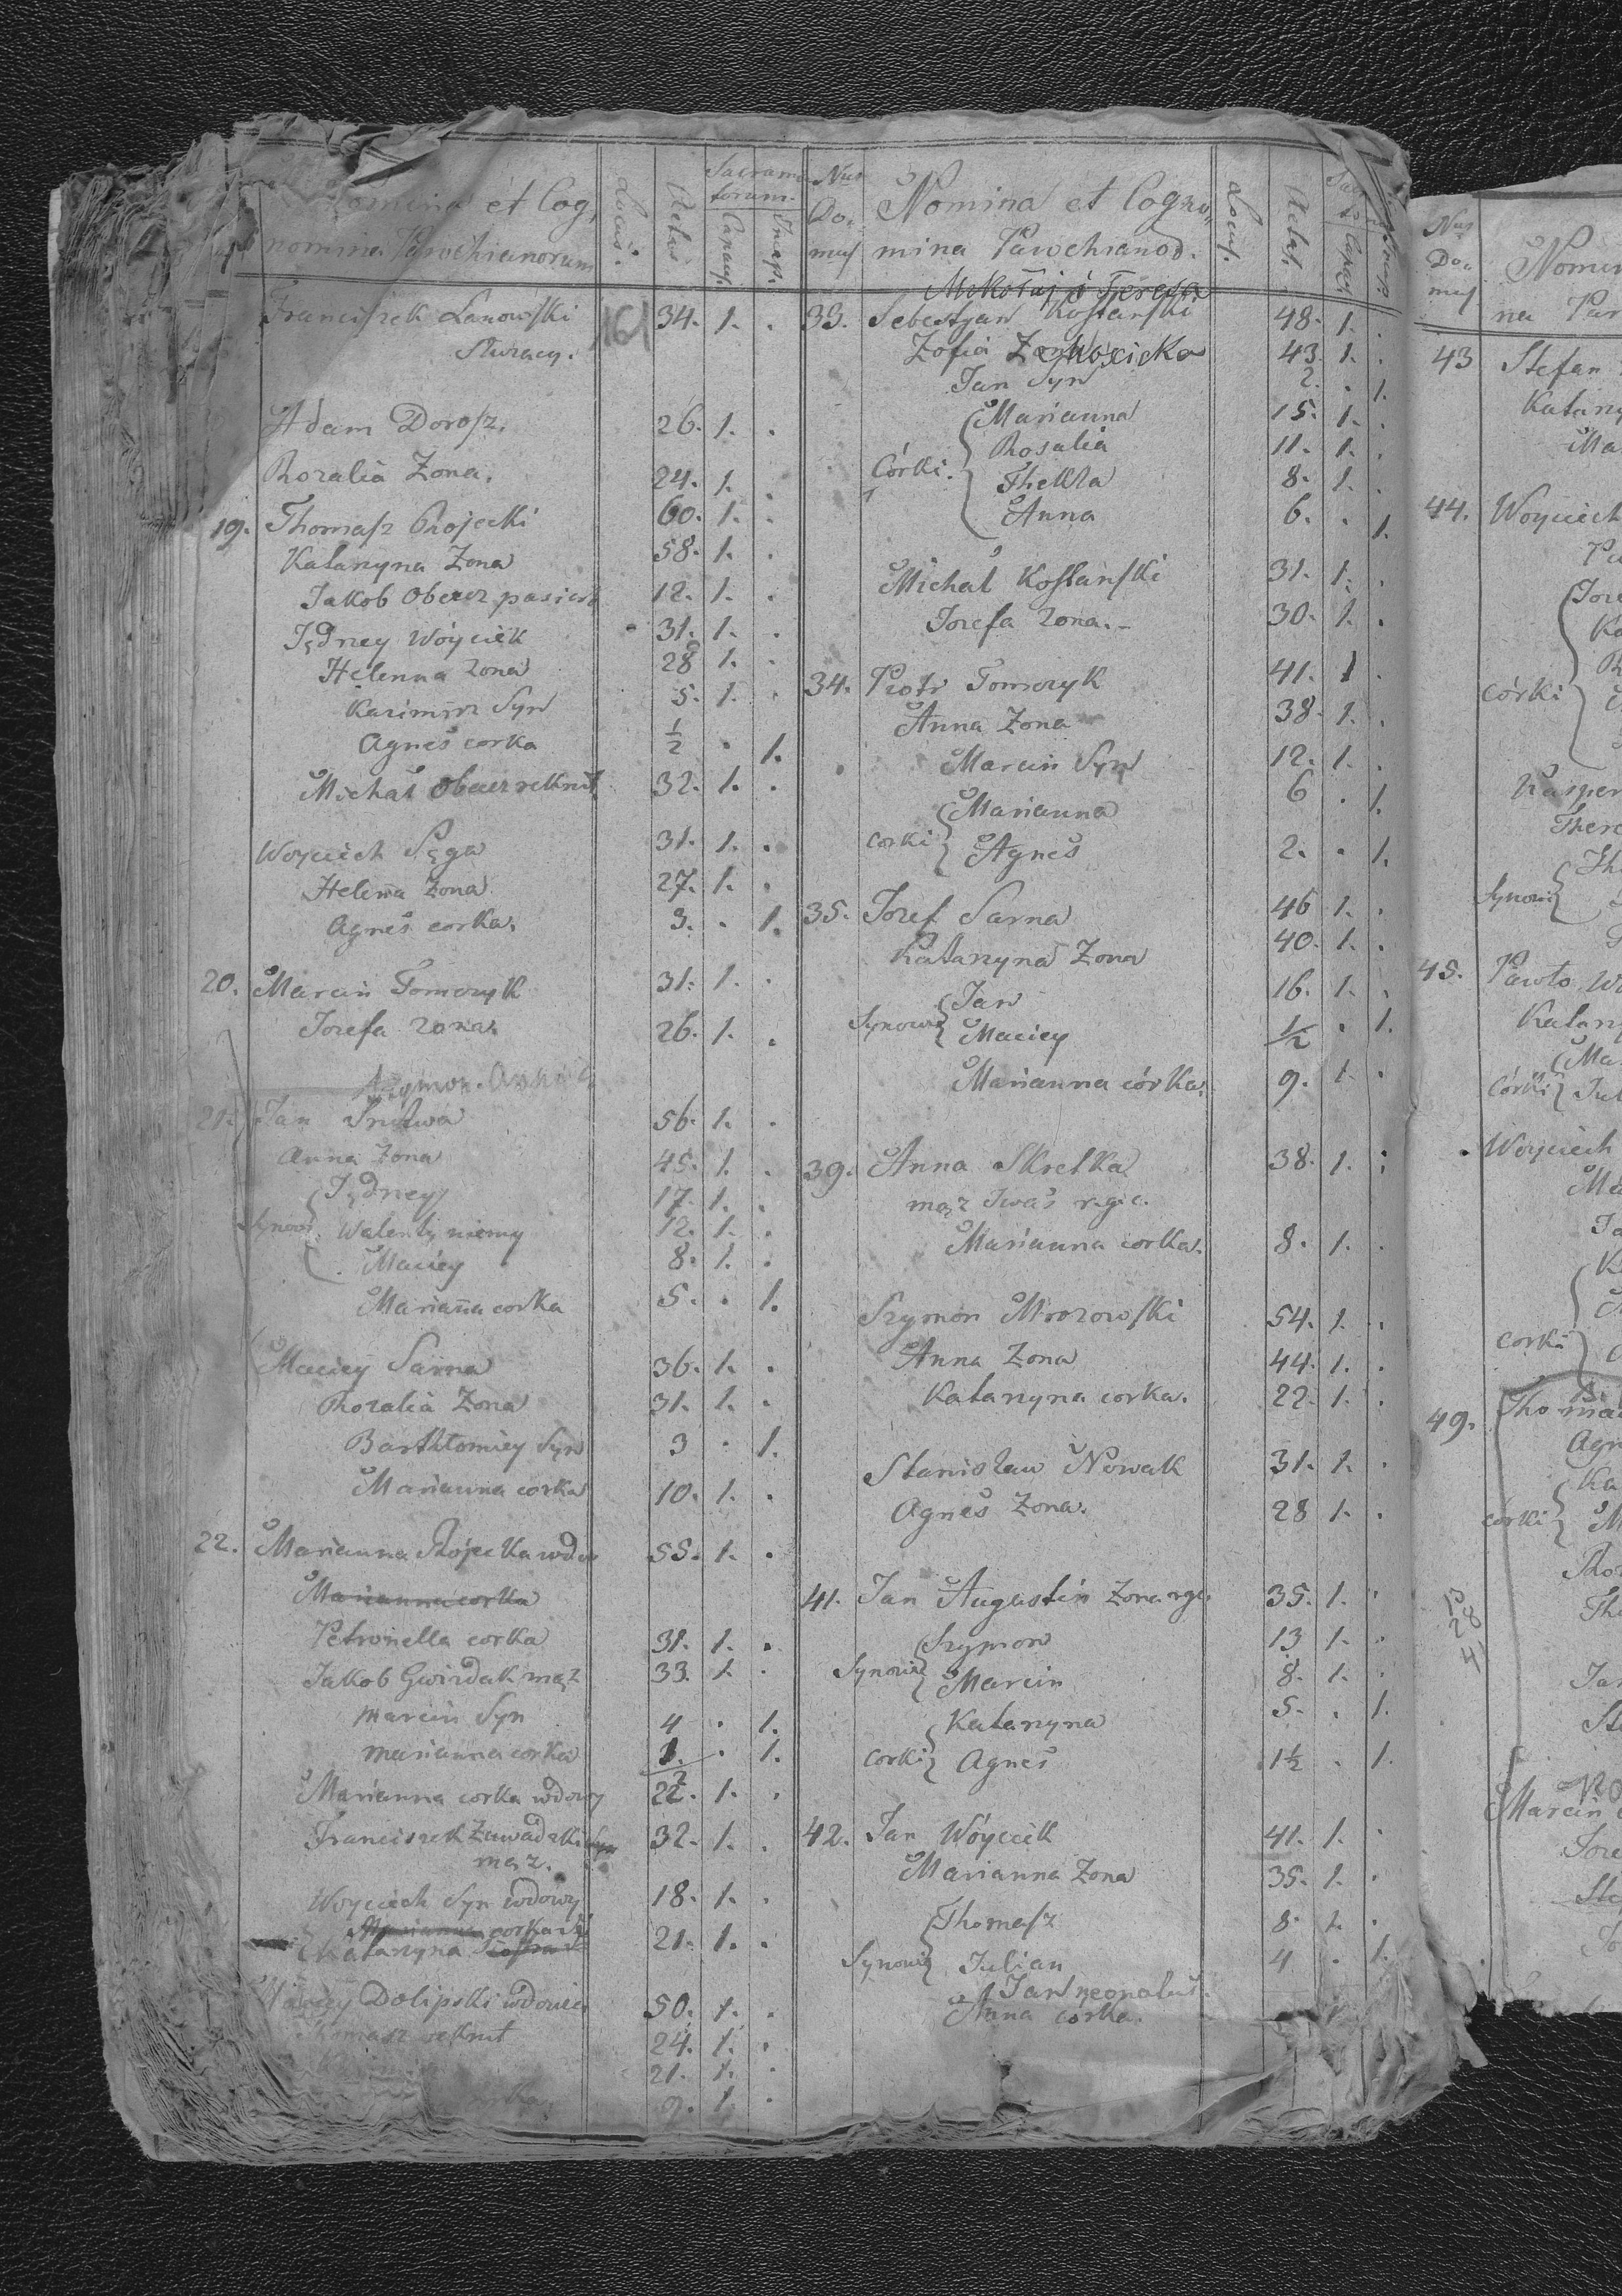 Nomina et Cog,
nomina Parochianorum
Locus.
Aetas
Sacramen
torum.
Capax.
Incap.
Franciszek Lanowski 34. 1. .
Służący.
Adam Dorosz. 26. 1. .
Rozalia Zona. 24. 1. .
19. Thomasz Rojecki 60. 1. .
Katarzyna Zona 58. 1. .
Jakob Obeerz pasierb 12. 1. .
Jędrzey Wóyciik 31. 1. .
Helenna zona 28 1. .
Kazimirz Syn 5. 1. .
Agnes corka ½ . 1.
Michał Obeerz rekrut 32. 1. .
Woyciech Sęga 31. 1. .
Helena Zona 27. 1. .
Agnes corka. 3. . 1.
20. Marcin Tomczyk 31. 1. .
Jozefa zona. 26. 1. .
21. Jan Srutwa 56. 1. .
Anna Zona 45. 1. .
Jędrzey 17. 1. .
Synowie Walenty niemy 12. 1. .
Maciey 8. 1. .
Mariana corka 5. . 1.
Maciey Sarna 36. 1. .
Rozalia Zona 31. 1. .
Barthłomiey Syn 3 . 1.
Marianna corka 10. 1. .
22. Marianna Rójecka wdo 55. 1. .
Marianna corka
Petronella corka 31. 1. .
Jakob Gwizdak mąz 33. 1. .
Marcin Syn 4 . 1.
Marianna corka . 1.
Marianna corka wdowy 22. 1. .
Franciszek Zawadzki 32. 1. .
mąz.
Woyciech Syn wdowy 18. 1. .
Marianna corka
Katarzyna 21. 1. .
Maciey Dolipski wdowiec 50. 1. .
Thomasz rekrut 24. 1. .
21. 1. .
9. 1. .
Nus
Do=
mus
Nomina et Cogno=
mina Parochianor.
Locus.
Aetas.
Capax
Incap
Mikołaj i Teresa
33. Sebestyan Kosłanski 48. 1. .
Zofia 43. 1. .
Jan Syn 2. . 1.
Marianna 15. 1. .
Rosalia 11. 1. .
Córki. Thekla 8. 1. .
Anna 6. . 1.
Michał Kosłanski 31. 1. .
Jozefa zona. 30. 1. .
34. Piotr Tomczyk 41. 1 .
Anna Zona 38. 1. .
Marcin Syn 12. 1. .
Marianna 6 . 1.
corki Agnes 2. . 1.
35. Jozef Sarna 46 1. .
Katarzyna Zona 40. 1. .
Jan 16. 1. .
Synowie Maciey ½ . 1.
Marianna córka. 9. 1. .
39. Anna Skrelka 38. 1. .
mąz Iwas r.g.c.
Marianna corka. 8. 1. .
Szymon Mrozowski 54. 1. .
Anna Zona 44. 1. .
Katarzyna corka. 22. 1. .
Stanisław Nowak 31. 1. .
Agnes Zona. 28 1. .
41. Jan Augustin Zona rgc. 35. 1. .
Szymon 13 1. .
Synowie Marcin 8. 1. .
Katarzyna 5. . 1.
corki Agnes 1½ . 1.
42. Jan Wóyciik 41. 1. .
Marianna Zona 35. 1. .
Thomasz 8. 1. .
Synowie Julian 4 . 1.
Jan neonatus.
Anna corka.
Nus
Do=
mus
Nomin
na Par
43 Stefan
Katarzy
Ma
44. Woyciech
Córki
Kasper
There
Synowie
45. Pawło
Katarz
Ma
Córki Jul
Woyciech
Ma
Ja
corki
49. Thoma
Agn
Ka
córki M
Tho
13
28
41
Jan
Marcin
Joze